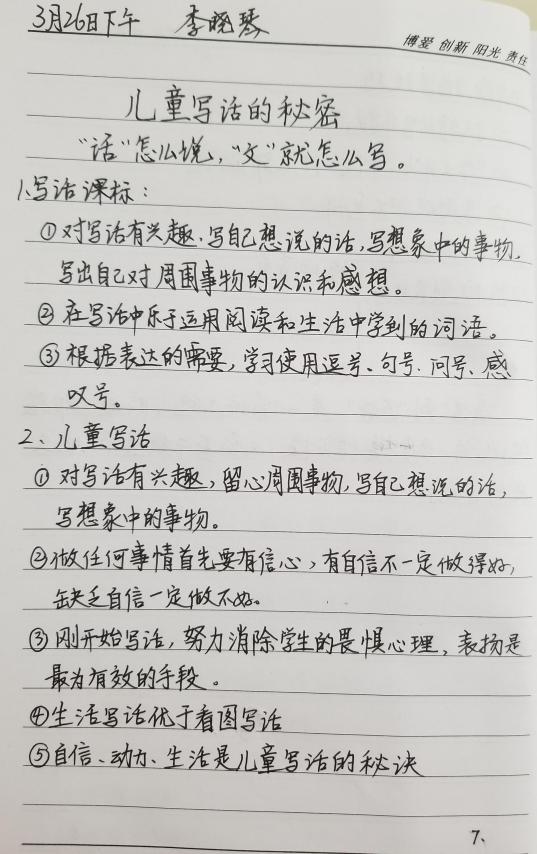 3月26日下午 李晓琴
博爱 创新 阳光 责任
儿童写话的秘密
“话”怎么说，“文”就怎么写。
1、写话课标：
①对写话有兴趣、写自己想说的话，写想象中的事物，
写出自己对周围事物的认识和感想。
②在写话中乐于运用阅读和生活中学到的词语。
③根据表达的需要，学习使用逗号、句号、问号、感
叹号。
2、儿童写话
①对写话有兴趣，留心周围事物，写自己想说的话，
写想象中的事物。
②做任何事情首先要有信心，有自信不一定做得好，
缺乏自信一定做不好。
③刚开始写话，努力消除学生的畏惧心理，表扬是
最为有效的手段。
④生活写话优于看图写话
⑤自信、动力、生活是儿童写话的秘诀
7、